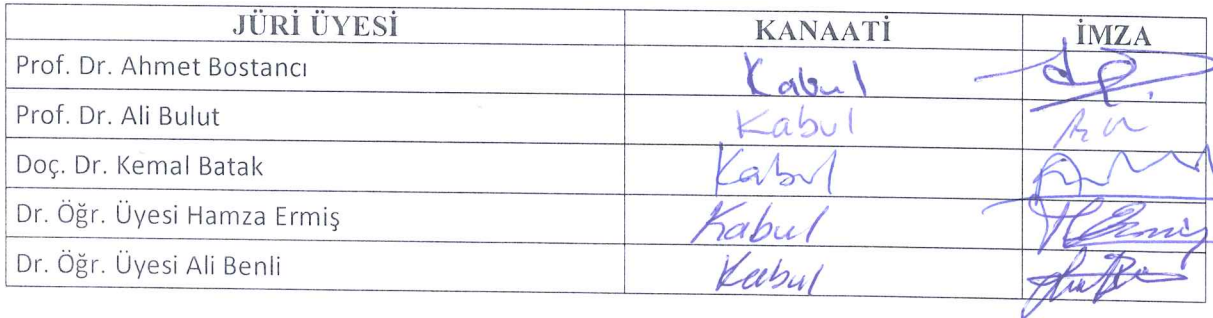 JÜRİ ÜYESİ KANAATİ İMZA
Prof. Dr. Ahmet Bostancı Kabul
Prof. Dr. Ali Bulut Kabul
Doç. Dr. Kemal Batak Kabul
Dr. Öğr. Üyesi Hamza Ermiş Kabul
Dr. Öğr. Üyesi Ali Benli Kabul